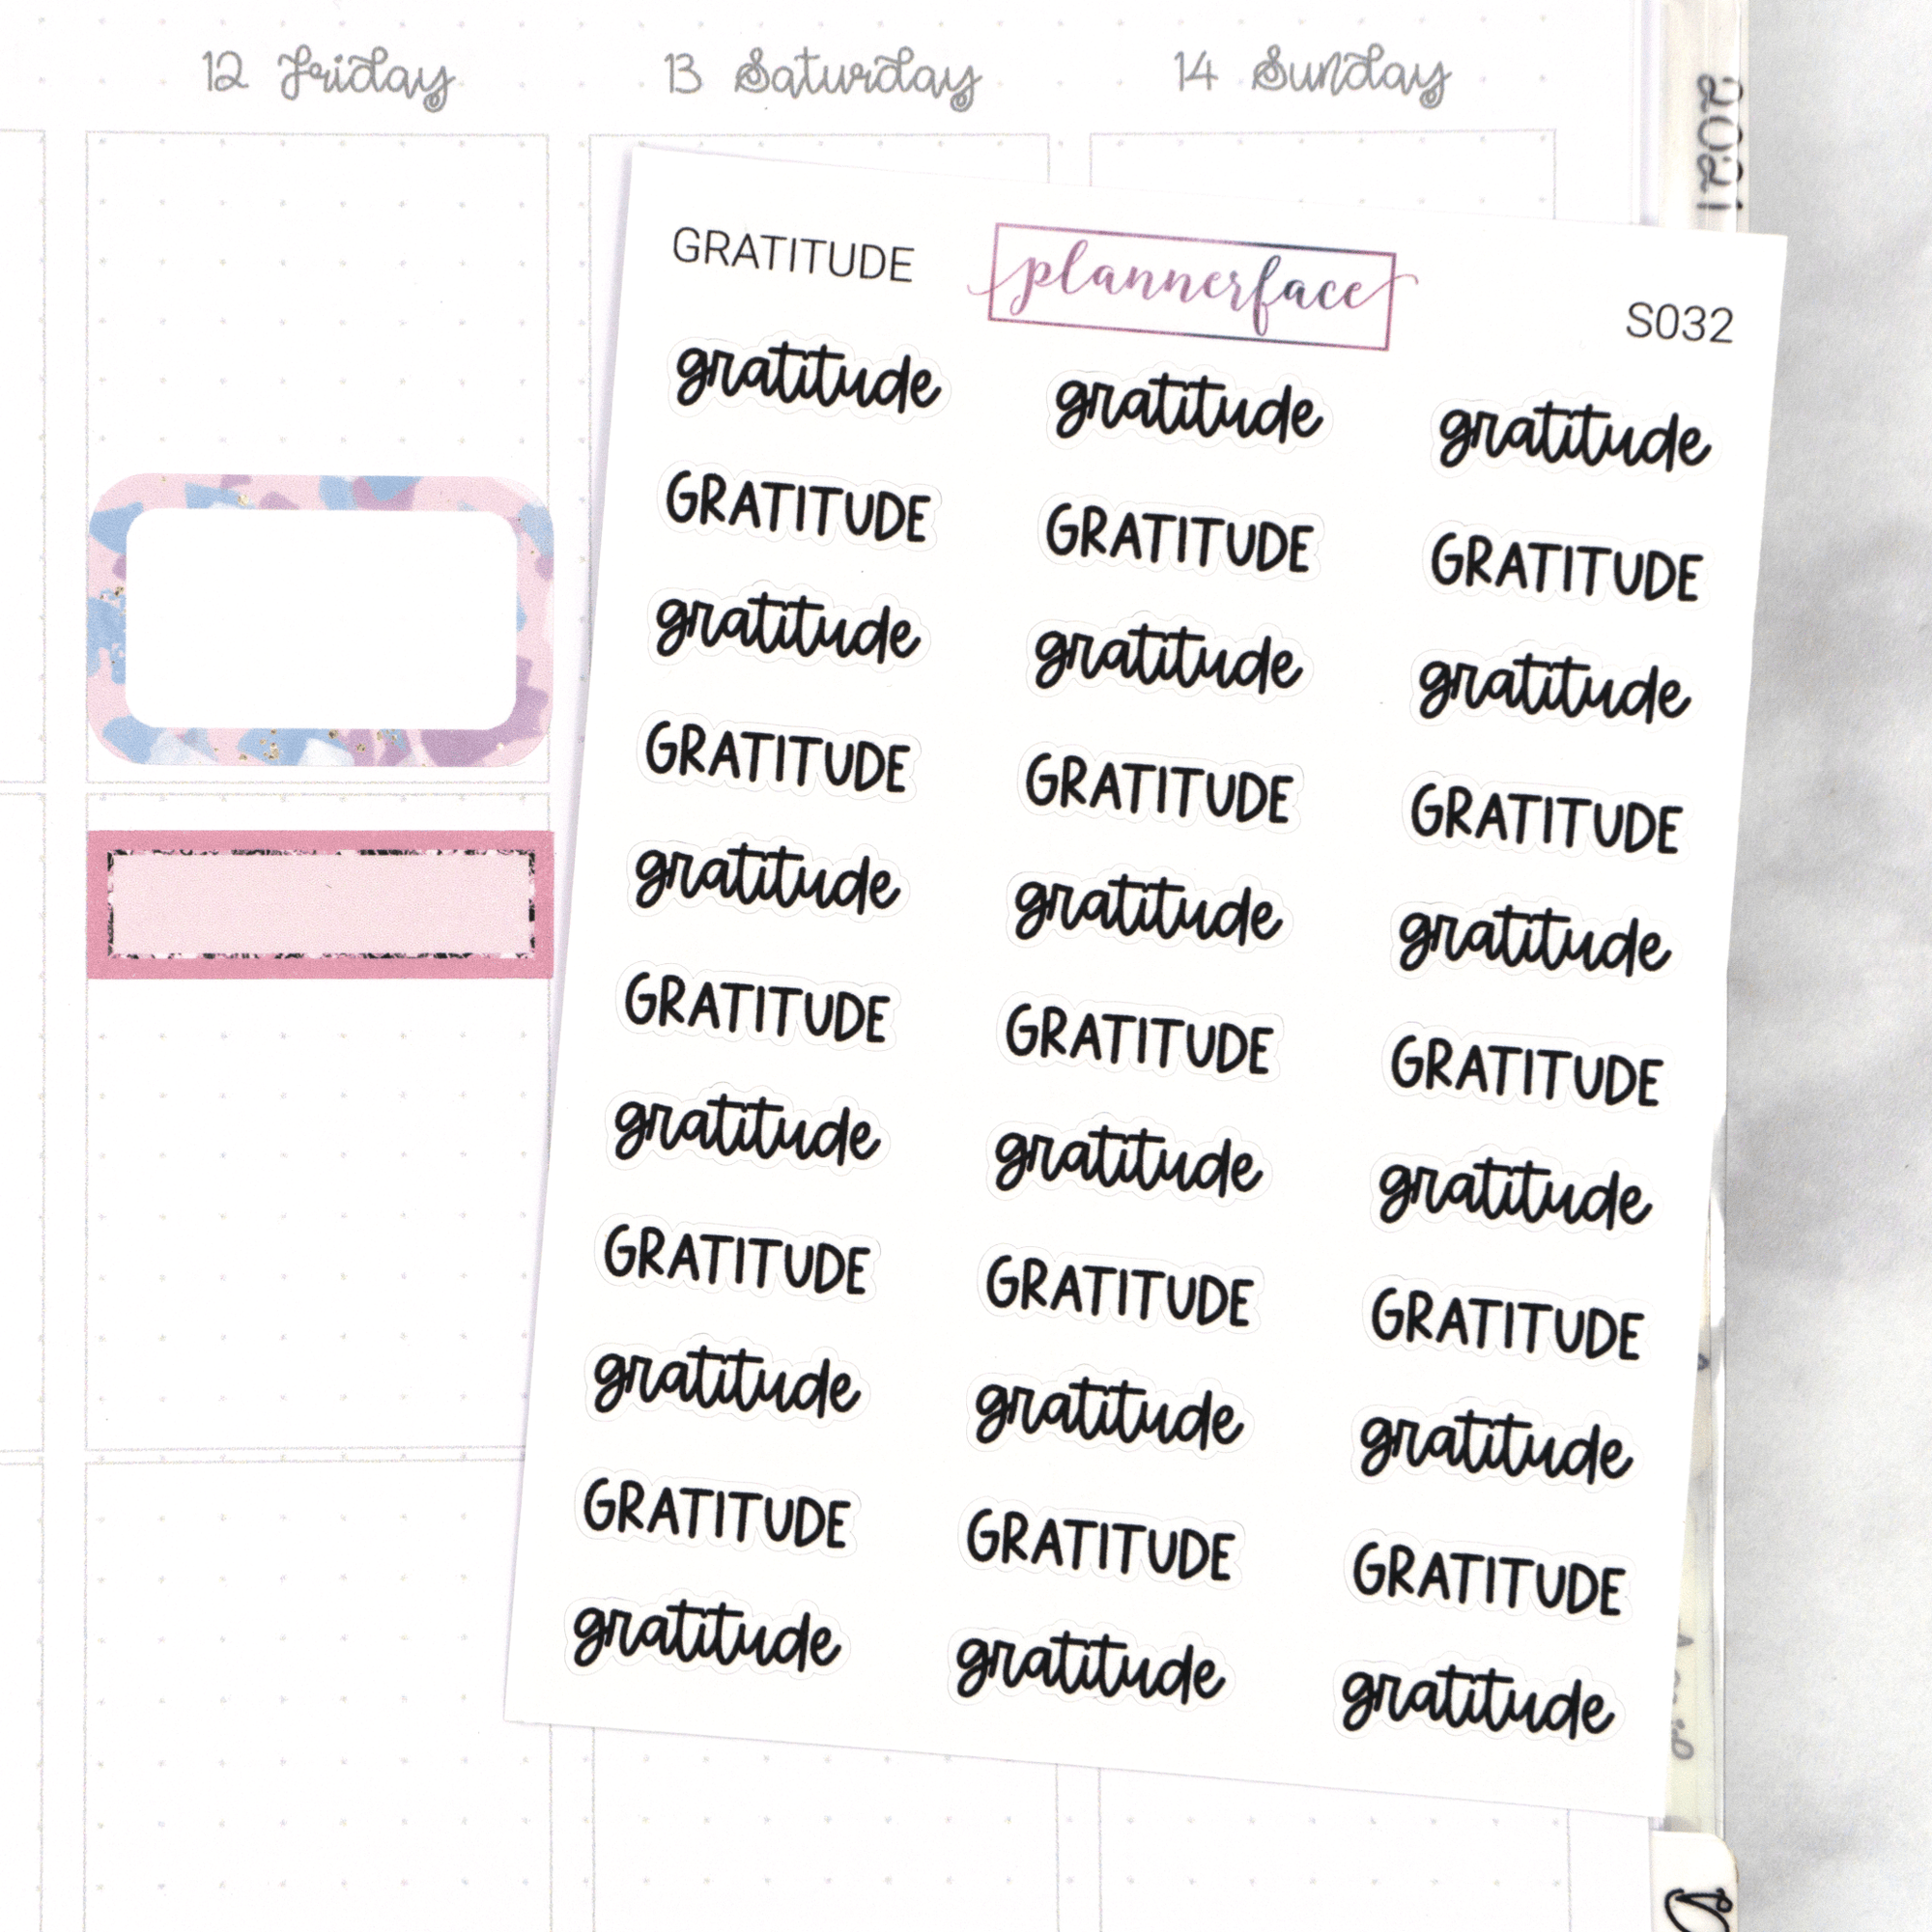 12 Friday 13 Saturday 14 Sunday
2021
GRATITUDE plannerface S032
gratitude gratitude gratitude
GRATITUDE GRATITUDE GRATITUDE
gratitude gratitude gratitude
GRATITUDE GRATITUDE GRATITUDE
gratitude gratitude gratitude
GRATITUDE GRATITUDE GRATITUDE
gratitude gratitude gratitude
GRATITUDE GRATITUDE GRATITUDE
gratitude gratitude gratitude
GRATITUDE GRATITUDE GRATITUDE
gratitude gratitude gratitude